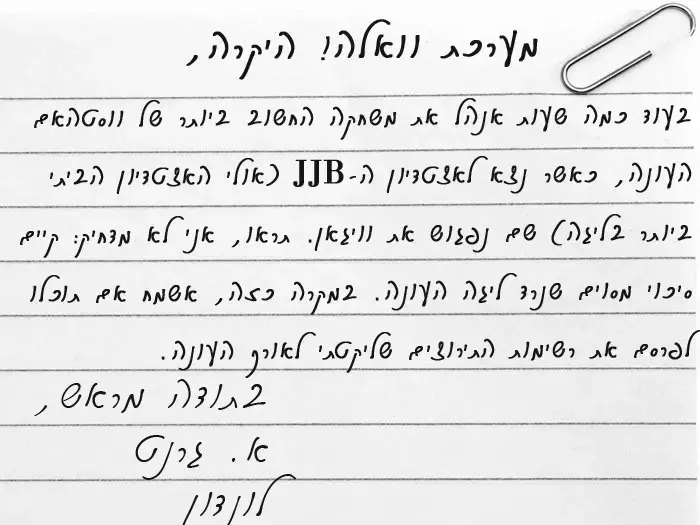 מערכת וואלה! היקרה,
בעוד כמה שעות אנהל את משחקה החשוב ביותר של ווסטהאם
העונה, כאשר נצא לאצטדיון ה-JJB (אולי האצטדיון הביתי
ביותר בליגה) שם נפגוש את וויגאן. תראו, אני לא מדחיק: קיים
סיכוי מסוים שנרד ליגה העונה. במקרה כזה, אשמח אם תוכלו
לפרסם את רשימות התירוצים שליקטתי לאורך העונה.
בתודה מראש,
א. גרנט
לונדון